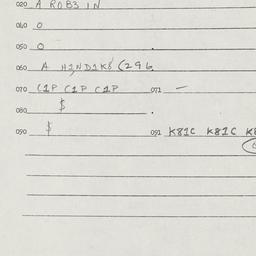 020 A ROB3 IN
040 0
050 0
060 A H2ND1K8 (296
070 C1P C1P C1P 071 —
080 $
090 $ 091 K81C K81C K8